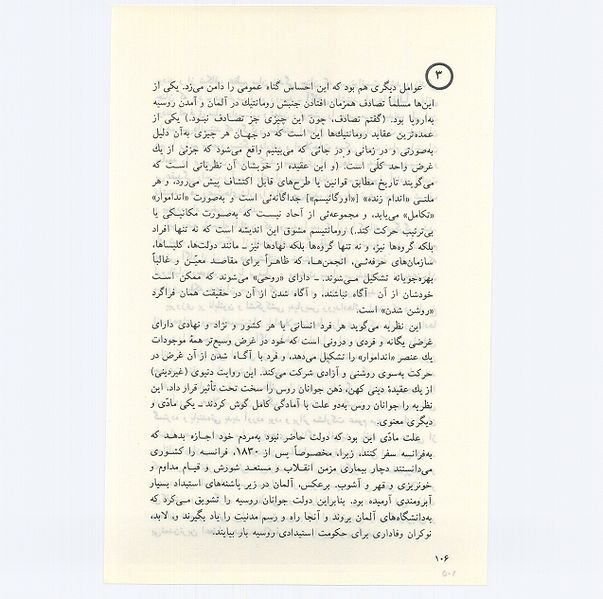 ۳
عوامل دیگری هم بود که این احساس گناه عمومی را دامن می‌زد. یکی از
این‌ها مسلماً تصادف همزمان افتادن جنبش رومانتیك در آلمان و آمدن روسیه
به‌اروپا بود. (گفتم تصادف، چون این چیزی جز تصادف نبود.) یکی از
عمده‌ترین عقاید رومانتیك‌ها این است که در جهان هر چیزی به‌آن دلیل
به‌صورتی و در زمانی و در جائی که می‌بینیم واقع می‌شود که جزئی از یك
غرض واحد کلّی است. (و این عقیده از خویشان آن نظریاتی است که
می‌گویند تاریخ مطابق قوانین یا طرح‌های قابل اکتشاف پیش می‌رود، و هر
ملتی «اندام زنده» [«اورگانیسم»] جداگانه‌ئی است و به‌صورت «انداموار»
«تکامل» می‌یابد، و مجموعه‌ئی از آحاد نیست که به‌صورت مکانیکی یا
بی‌ترتیب حرکت کند.) رومانتیسم مشوق این اندیشه است که نه تنها افراد
بلکه گروه‌ها نیز، و نه تنها گروه‌ها بلکه نهادها نیز ــ مانند دولت‌ها، کلیساها،
سازمان‌های حرفه‌ئی، انجمن‌ها، که ظاهراً برای مقاصد معیّن و غالباً
بهره‌جویانه تشکیل می‌شوند. ــ دارای «روحی» می‌شوند که ممکن است
خودشان از آن آگاه نباشند، و آگاه شدن از آن در حقیقت همان فراگرد
«روشن شدن» است.
این نظریه می‌گوید هر فرد انسانی یا هر کشور و نژاد و نهادی دارای
غرضی یگانه و فردی و درونی است که خود در غرض وسیع‌تر همهٔ موجودات
یك عنصر «انداموار» را تشکیل می‌دهد، و فرد با آگاه شدن از آن غرض در
حرکت به‌سوی روشنی و آزادی شرکت می‌کند. این روایت دنیوی (غیردینی)
از یك عقیدهٔ دینی کهن، ذهن جوانان روس را سخت تحت تأثیر قرار داد. این
نظریه را جوانان روس به‌دو علت با آمادگی کامل گوش کردند ــ یکی مادّی و
دیگری معنوی.
علت مادّی این بود که دولت حاضر نبود به‌مردم خود اجازه بدهد که
به‌فرانسه سفر کنند، زیرا، مخصوصاً پس از ۱۸۳۰، فرانسه را کشوری
می‌دانستند دچار بیماری مزمن انقلاب و مستعد شورش و قیام مداوم و
خونریزی و قهر و آشوب. برعکس، آلمان در زیر پاشنه‌های استبداد بسیار
آبرومندی آرمیده بود. بنابراین دولت جوانان روسیه را تشویق می‌کرد که
به‌دانشگاه‌های آلمان بروند و آنجا راه و رسم مدنیت را یاد بگیرند و، لابد،
نوکران وفاداری برای حکومت استبدادی روسیه بار بیایند.
۱۰۶